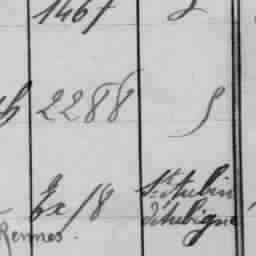 1467
2288
Ex / 8 St Aubin
d'Aubigné
Rennes.